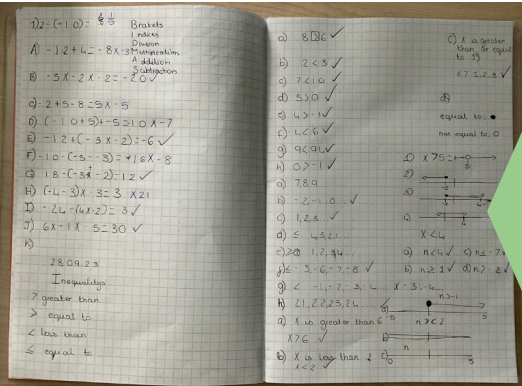 1) 2-(-10)=
Brakets
Indices
Division
Multipication
Addition
Subtraction
A) -12+4=-8x-3
B) -5x-2x-2=-20✓
c) -2+5-8=5x-5
D) (-10+5)+-5=10x-7
E) -12+(-3x-2)=-6✓
F) -10-(-5--3)=+16x-8
G) 18-(-3x-2)=12✓
H) (-4-3)x-3=3 x21
I) -24-(4x-2)=3✓
J) 6x-1x-5=30✓
K)
28.09.23
Inequalitys
> greater than
⩾ equal to
< less than
≤ equal to
a) 8 > 6 ✓
b) 2<3 ✓
c) 7<10 ✓
d) 5>0 ✓
e) 4>-1 ✓
f) 4<6 ✓
g) 9<94 ✓
h) 0>-1 ✓
a) 7,8,9
b) -2,-1,0 ✓
c) 1,2,3. ✓
d) ≤ 4,3,2,1
e) 1,2,3,4...
f) ≤ -5,-6,-7,-8 ✓
g) < -1,-2,-3,-4... x-3,-4...
h) 21,22,23,24...
a) X is greater than 6
X>6 ✓
b) X is less than 2
x<2 ✓
c) X is greater
than or equal
to 1)
X 7 1,2,3 ✓
equal to: ●
not equal to: O
1) X>5=
2)
3)
4)
X<4
a) n<4 ✓ c) n≤-7
b) n≥1 ✓ d) n>-2 ✓
n>-1
a)
-5 5
n>c2
b)
n
c)
0 5